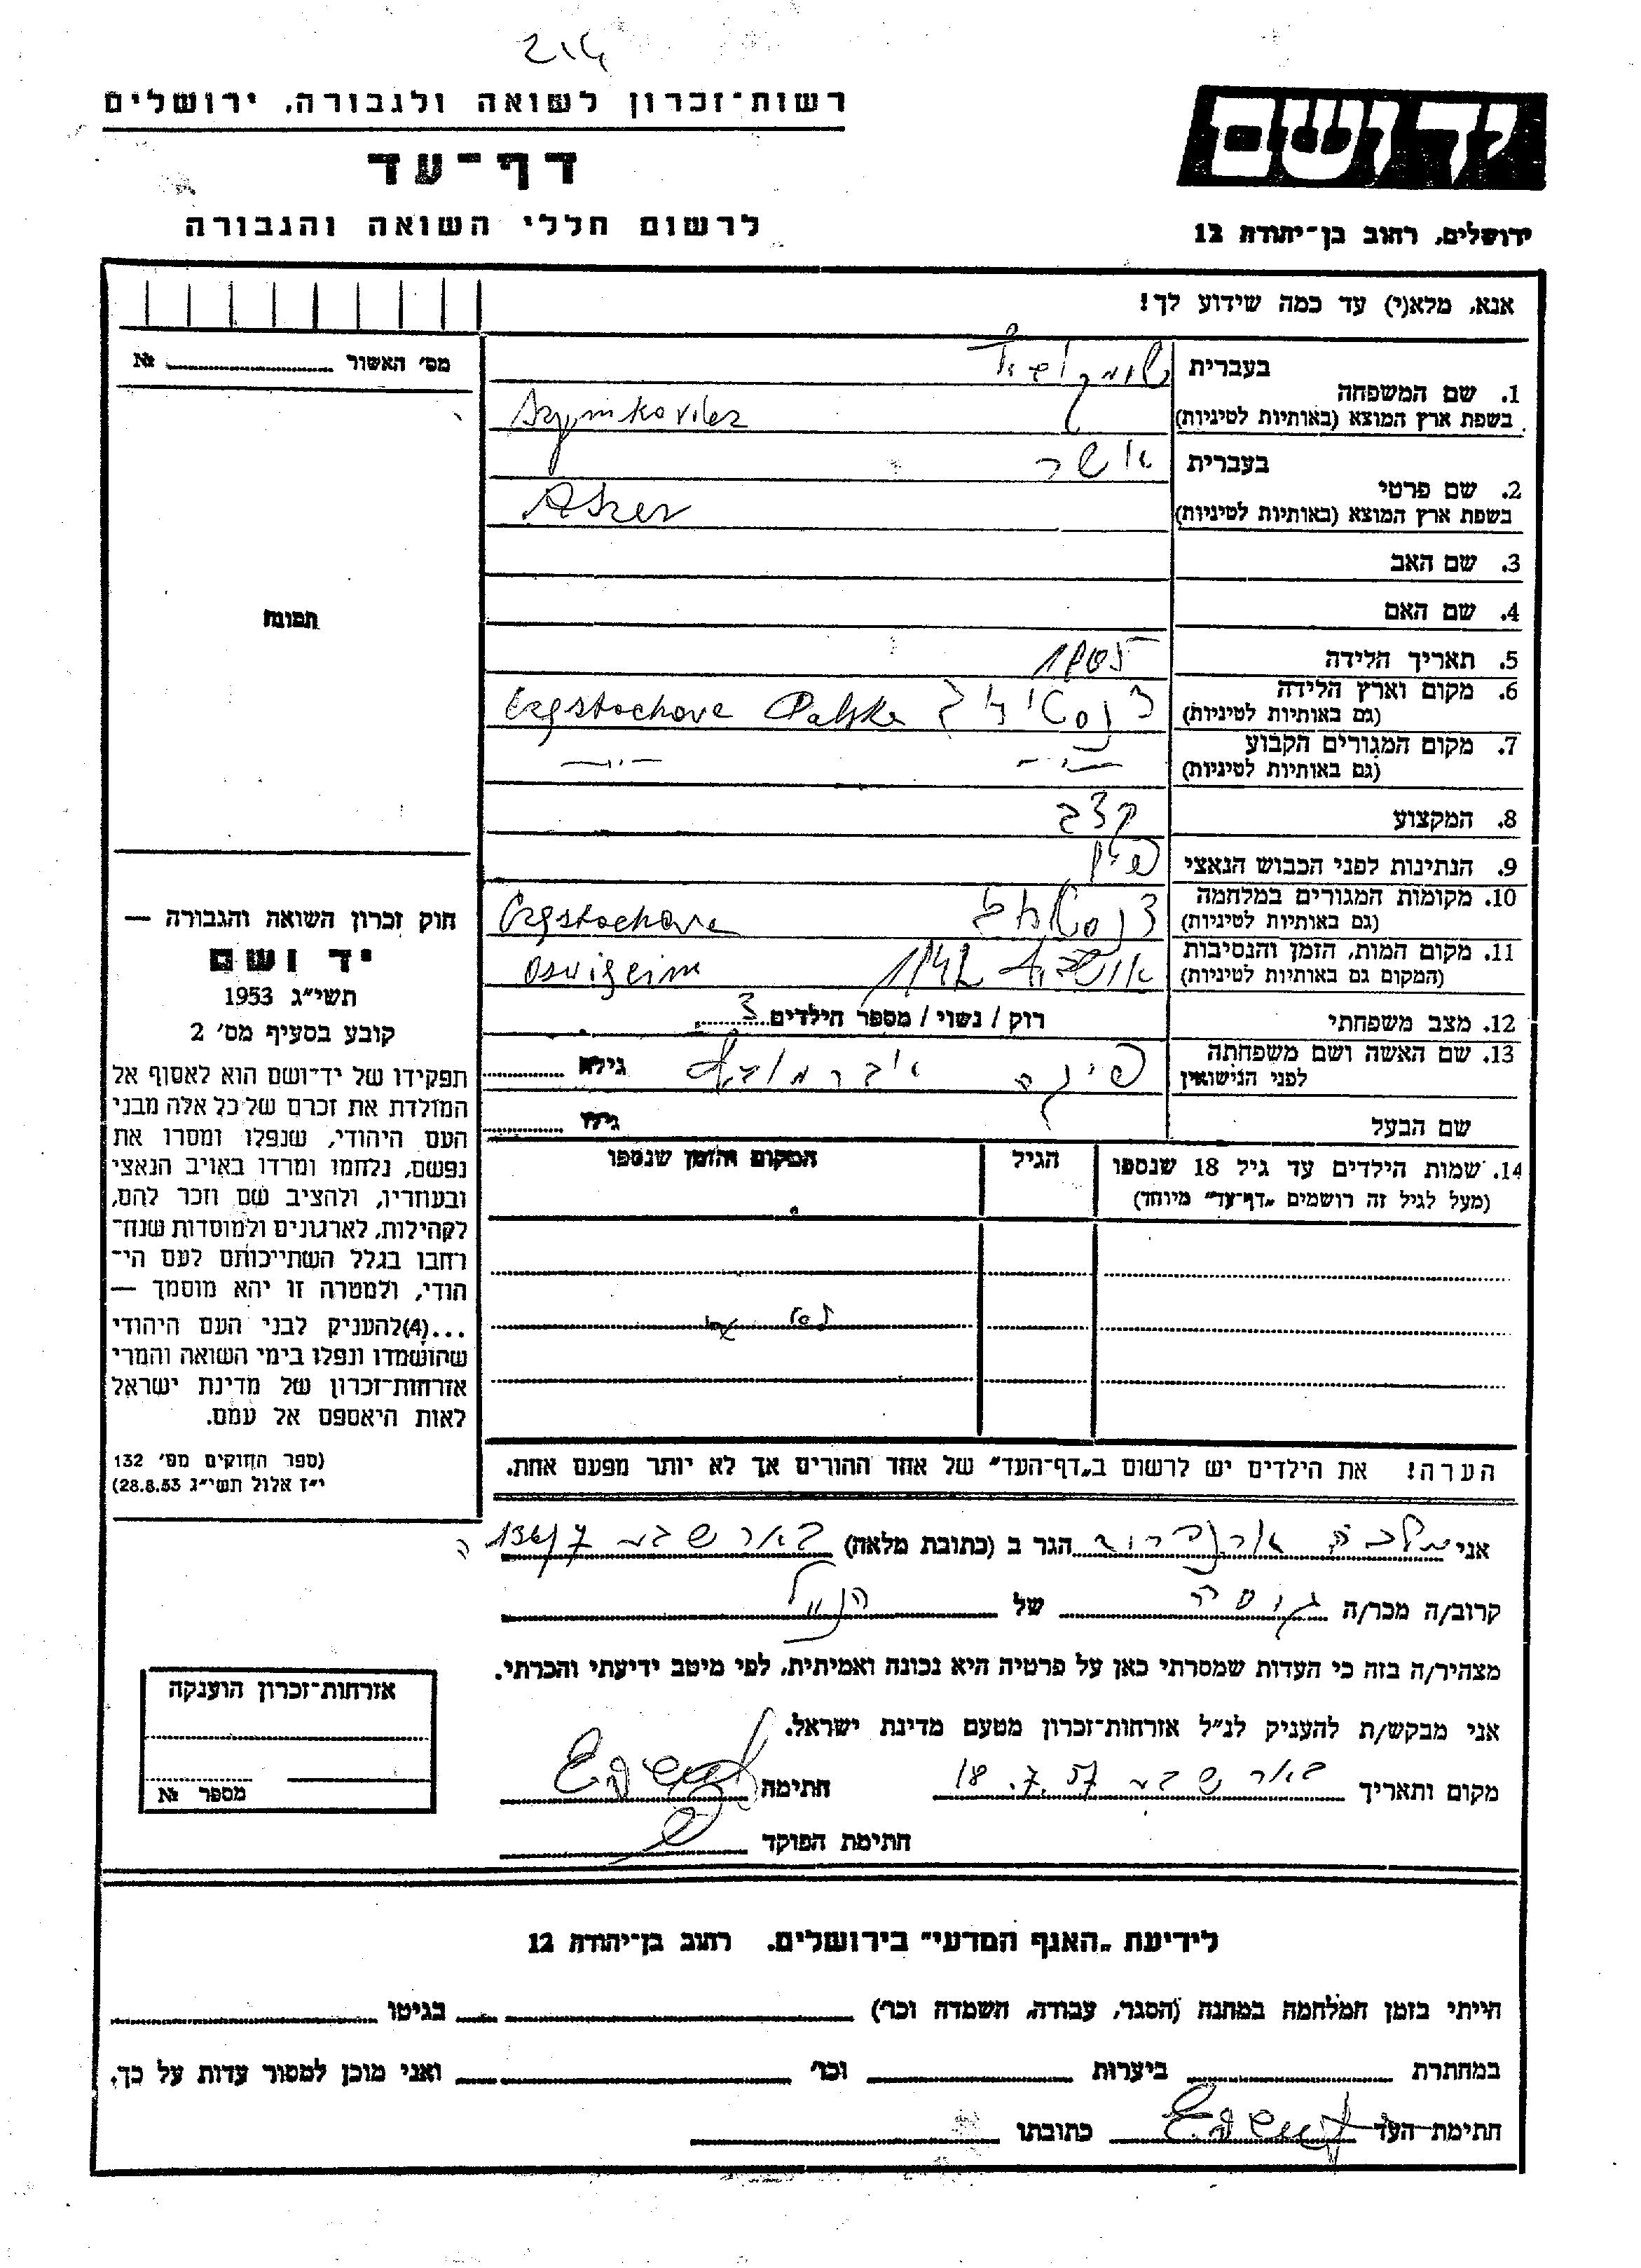 214
רשות־זכרון לשואה ולגבורה, ירושלים
דף־עד
לרשום חללי השואה והגבורה
יד ושם
ירושלים, רחוב בן־יהודה 12
אנא, מלא(י) עד כמה שידוע לך!
מס׳ האשור № 
תמונה
חוק זכרון השואה והגבורה —
יד ושם
תשי״ג 1953
קובע בסעיף מס׳ 2
תפקידו של יד־ושם הוא לאסוף אל
המולדת את זכרם של כל אלה מבני
העם היהודי, שנפלו ומסרו את
נפשם, נלחמו ומרדו באויב הנאצי
ובעוזריו, ולהציב שם וזכר להם,
לקהילות, לארגונים ולמוסדות שנח־
רחבו בגלל השתייכותם לעם הי־
הודי, ולמטרה זו יהא מוסמך —
...(4)להעניק לבני העם היהודי
שהושמדו ונפלו בימי השואה והמרי
אזרחות־זכרון של מדינת ישראל
לאות היאספם אל עמם.
(ספר החוקים מס׳ 132
י״ז אלול תשי״ג 28.8.53)
1. שם המשפחה
בעברית
בשפת ארץ המוצא (באותיות לטיניות) Szymkovicz
2. שם פרטי
בעברית אשר
בשפת ארץ המוצא (באותיות לטיניות) Aszer
3. שם האב
4. שם האם
5. תאריך הלידה 1905
6. מקום וארץ הלידה
(גם באותיות לטיניות) Częstochova Polska
7. מקום המגורים הקבוע
(גם באותיות לטיניות) —״— —״—
8. המקצוע קצב
9. הנתינות לפני הכבוש הנאצי פולין
10. מקומות המגורים במלחמה
(גם באותיות לטיניות) Częstochova
11. מקום המות, הזמן והנסיבות
(המקום גם באותיות לטיניות) 1942 Oswięcim
12. מצב משפחתי רוק / נשוי / מספר הילדים 3
13. שם האשה ושם משפחתה
לפני הנישואין אברמוביץ גילה
שם הבעל גילו
14. שמות הילדים עד גיל 18 שנספו הגיל המקום והזמן שנספו
(מעל לגיל זה רושמים „דף־עד״ מיוחד)
הערה! את הילדים יש לרשום ב„דף־העד״ של אחד ההורים אך לא יותר מפעם אחת.
אני מלכה הגר ב (כתובת מלאה) באר שבע
קרוב/ה מכר/ה גיסה של הנ״ל
מצהיר/ה בזה כי העדות שמסרתי כאן על פרטיה היא נכונה ואמיתית, לפי מיטב ידיעתי והכרתי.
אני מבקש/ת להעניק לנ״ל אזרחות־זכרון מטעם מדינת ישראל.
מקום ותאריך באר שבע 18.7.57 חתימה
חתימת הפוקד
אזרחות־זכרון הוענקה
מספר №
לידיעת „האגף המדעי״ בירושלים, רחוב בן־יהודה 12
הייתי בזמן המלחמה במחנה (הסגר, עבודה, השמדה וכו׳) בגיטו
במחתרת ביערות וכו׳ ואני מוכן למסור עדות על כך.
חתימת העד כתובתו